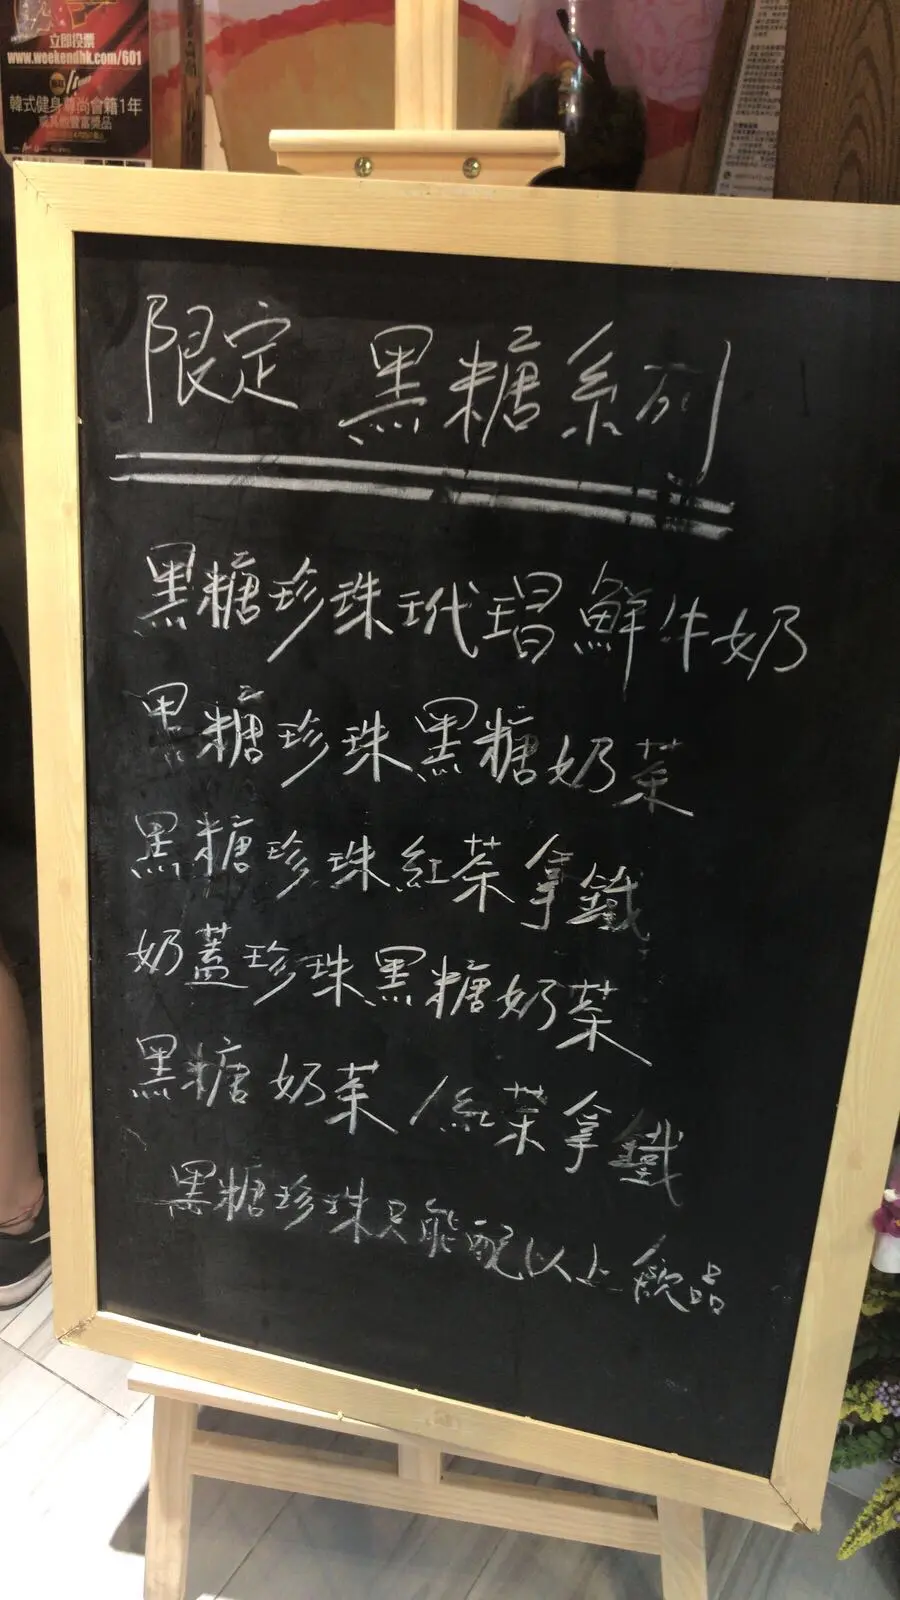 立即投票
www.weekendhk.com/601
韓式健身尊尚會籍1年
限定 黑糖系列
黑糖珍珠玳瑁鮮牛奶
黑糖珍珠黑糖奶茶
黑糖珍珠紅茶拿鐵
奶蓋珍珠黑糖奶茶
黑糖奶茶/紅茶拿鐵
黑糖珍珠只能配以上飲品